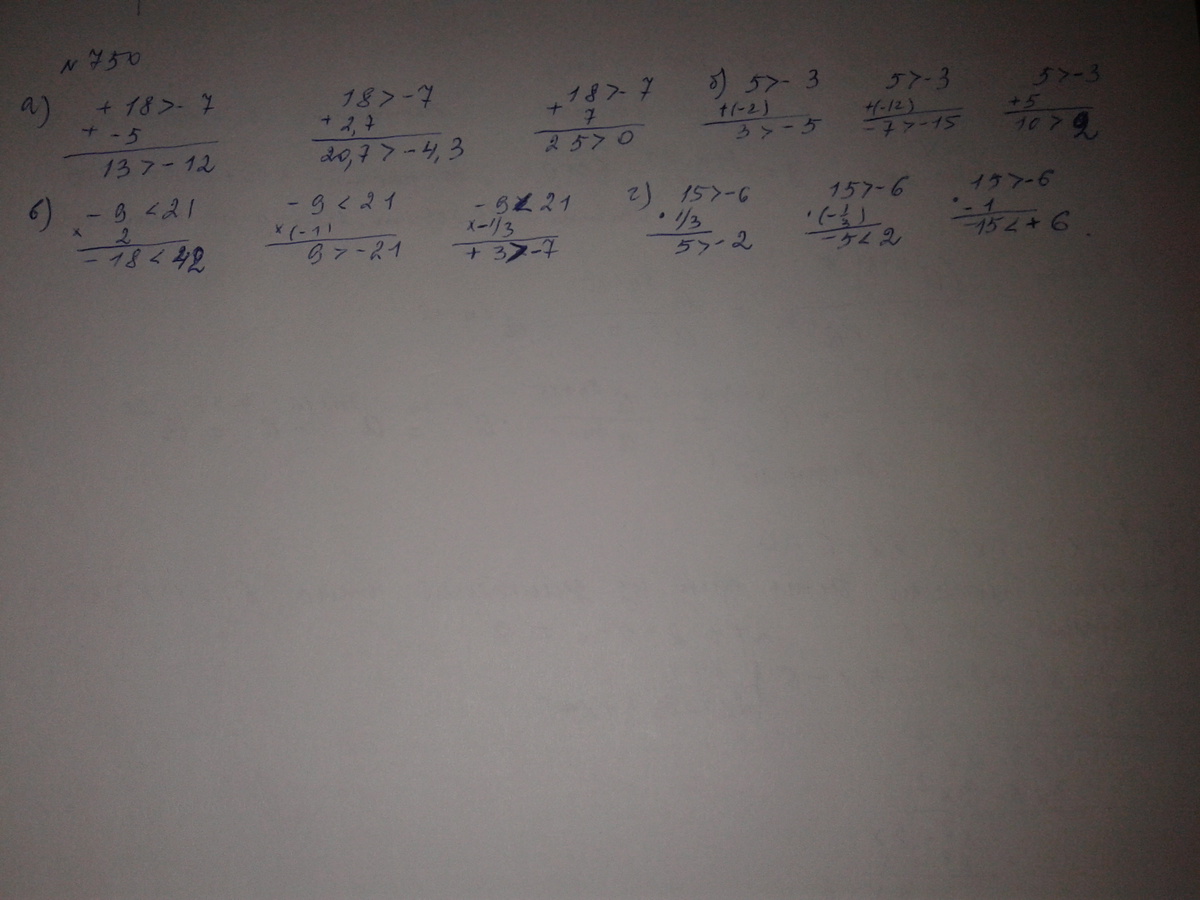 № 750
а) + 18 > - 7   18 > - 7   18 > - 7   б) 5 > - 3   5 > - 3   5 > - 3
+ - 5   + 2,7   + 7   + (-2)   + (-12)   + 5
13 > - 12   20,7 > - 4,3   25 > 0   3 > - 5   - 7 > - 15   10 > 2
в) - 9 < 21   - 9 < 21   - 9 < 21   г) 15 > - 6   15 > - 6   15 > - 6
× 2   × (-1)   × - 1/3   · 1/3   · (-1/3)   · - 1
- 18 < 42   9 > - 21   + 3 > - 7   5 > - 2   - 5 < 2   - 15 < + 6 .